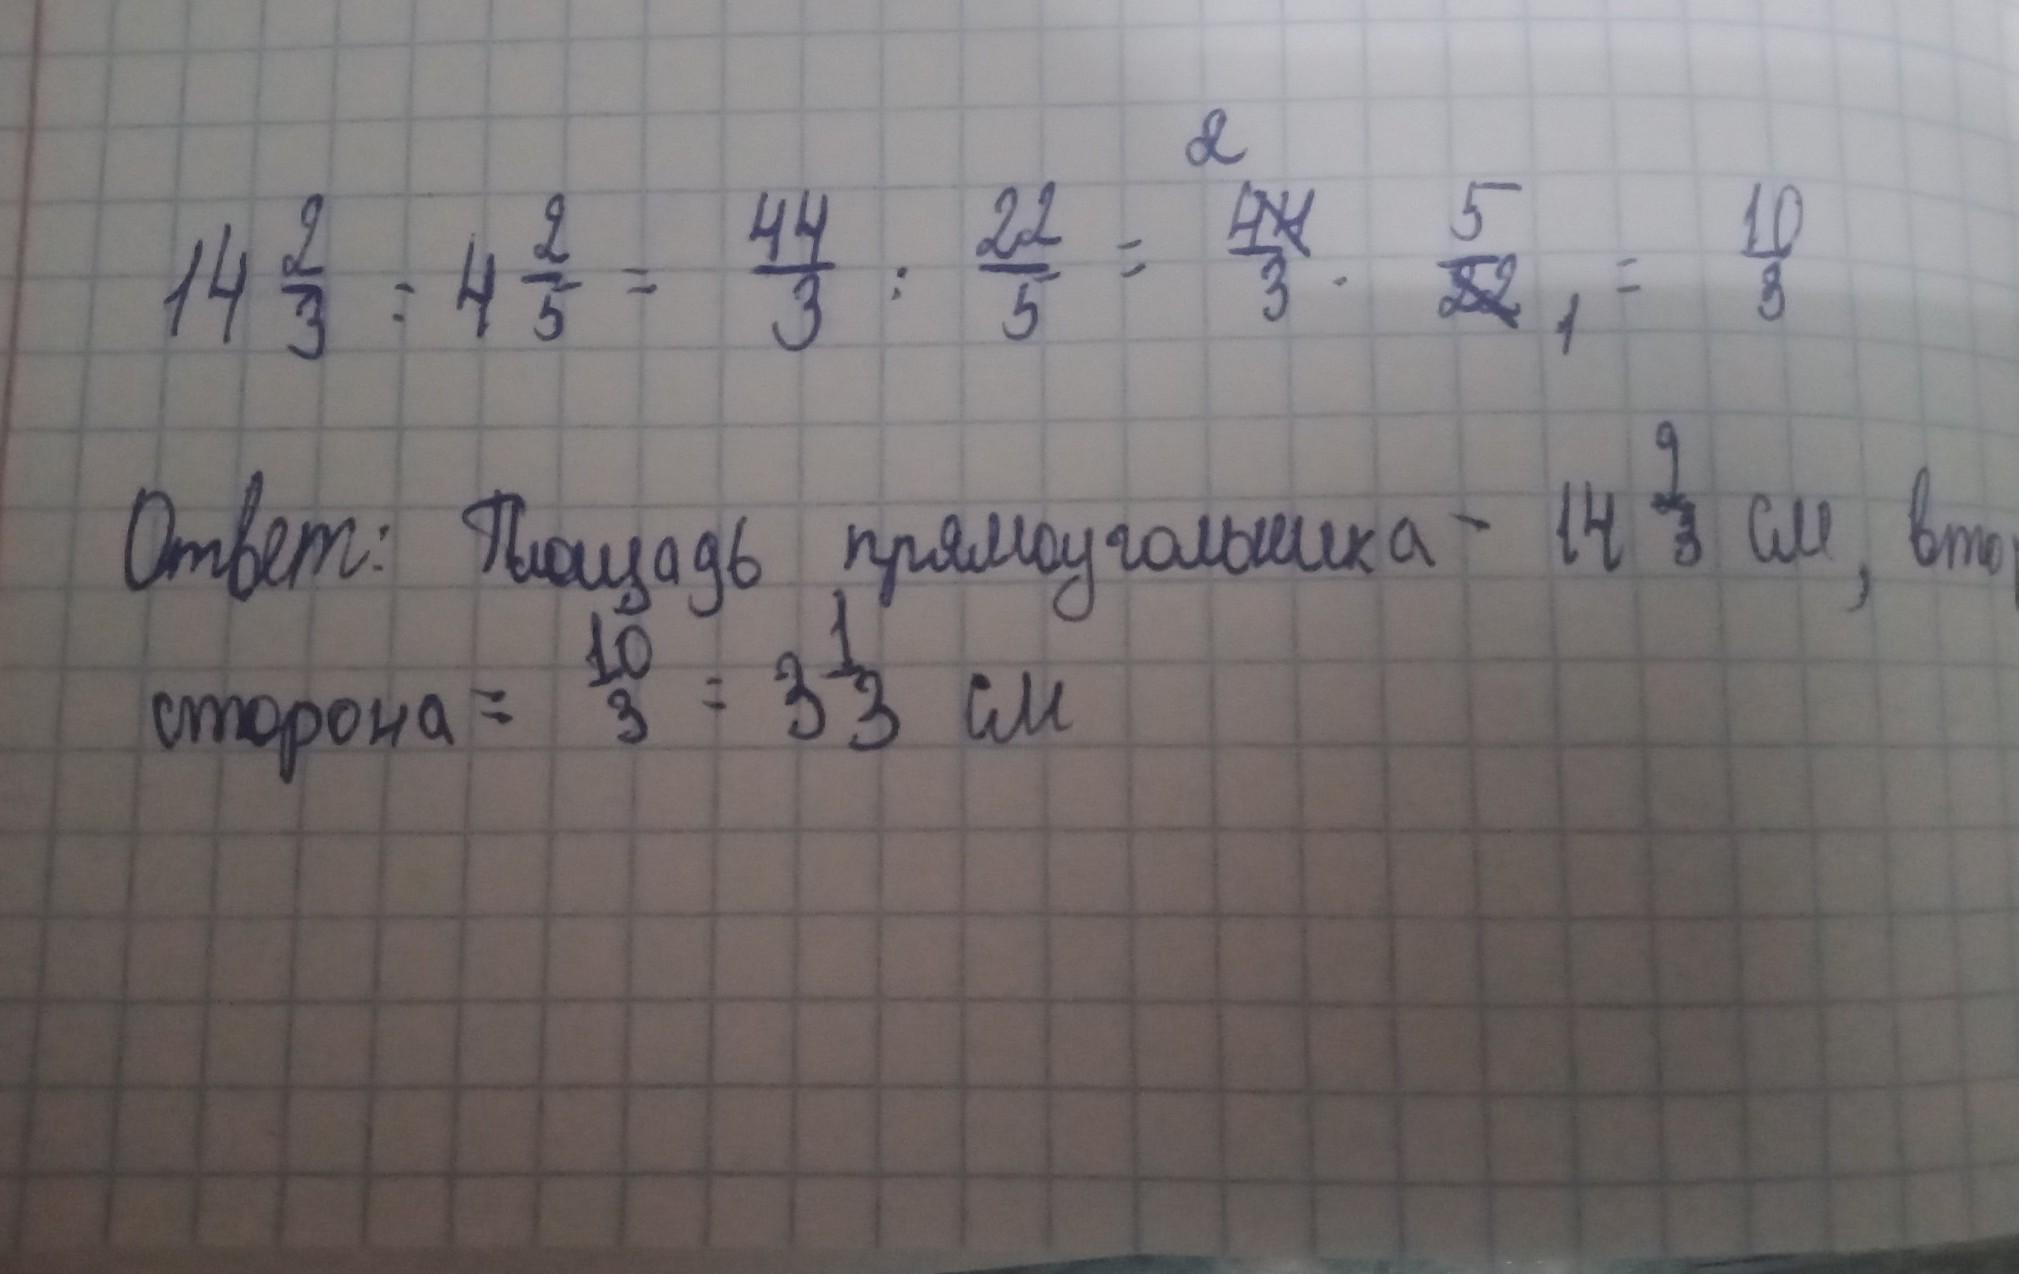 14 2/3 : 4 2/5 = 44/3 : 22/5 = 2 44/3 · 5/22 1 = 10/3
Ответ: Площадь прямоугольника - 14 2/3 см, втор
сторона = 10/3 = 3 1/3 см